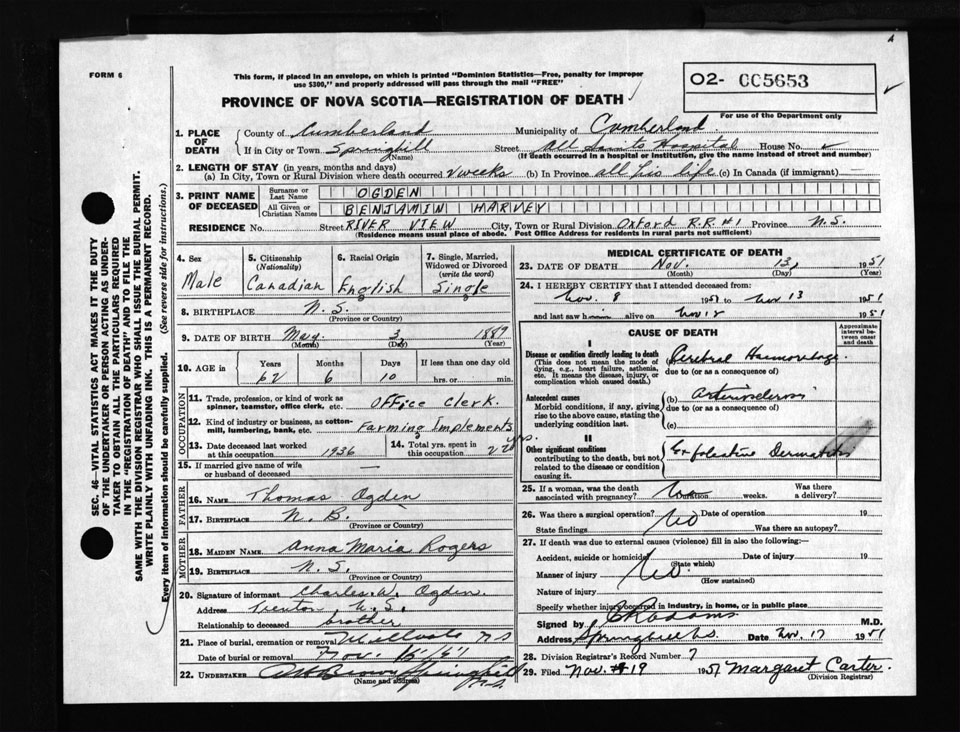 A
FORM 6
This form, if placed in an envelope, on which is printed "Dominion Statistics—Free, penalty for improper
use $300," and properly addressed will pass through the mail "FREE"
O2- CC5653
For use of the Department only
PROVINCE OF NOVA SCOTIA—REGISTRATION OF DEATH
1. PLACE OF DEATH { County of Cumberland Municipality of Cumberland
If in City or Town Springhill (Name) Street All Saints Hospital House No.
(If death occurred in a hospital or institution, give the name instead of street and number)
2. LENGTH OF STAY (in years, months and days)
(a) In City, Town or Rural Division where death occurred 2 weeks (b) In Province all his life (c) In Canada (if immigrant) —
3. PRINT NAME OF DECEASED { Surname or Last Name OGDEN
All Given or Christian Names BENJAMIN HARVEY
RESIDENCE No. Street RIVER VIEW City, Town or Rural Division Oxford R.R. #1 Province N.S.
(Residence means usual place of abode. Post Office Address for residents in rural parts not sufficient)
4. Sex Male
5. Citizenship (Nationality) Canadian
6. Racial Origin English
7. Single, Married, Widowed or Divorced (write the word) Single
8. BIRTHPLACE N.S. (Province or Country)
9. DATE OF BIRTH May (Month) 3 (Day) 1889 (Year)
10. AGE in Years 62 Months 6 Days 10 If less than one day old hrs. or min.
OCCUPATION
11. Trade, profession, or kind of work as spinner, teamster, office clerk, etc. Office Clerk.
12. Kind of industry or business, as cotton-mill, lumbering, bank, etc. Farming Implements
13. Date deceased last worked at this occupation 1936
14. Total yrs. spent in this occupation 22 yrs.
15. If married give name of wife or husband of deceased —
FATHER
16. NAME Thomas Ogden
17. BIRTHPLACE N.B. (Province or Country)
MOTHER
18. MAIDEN NAME Anna Maria Rogers
19. BIRTHPLACE N.S. (Province or Country)
20. Signature of informant Charles W. Ogden
Address Trenton N.S.
Relationship to deceased brother
21. Place of burial, cremation or removal NS
Date of burial or removal Nov.
22. UNDERTAKER Brown Springhill N.S.
(Name and address)
MEDICAL CERTIFICATE OF DEATH
23. DATE OF DEATH Nov. (Month) 13 (Day) 1951 (Year)
24. I HEREBY CERTIFY that I attended deceased from:
Nov. 8 1951 to Nov 13 1951
and last saw him alive on Nov 12 1951
CAUSE OF DEATH
Approximate interval between onset and death
I
Disease or condition directly leading to death
(This does not mean the mode of dying, e.g., heart failure, asthenia, etc. It means the disease, injury, or complication which caused death.)
(a) Cerebral Haemorrhage
due to (or as a consequence of)
Antecedent causes
Morbid conditions, if any, giving rise to the above cause, stating the underlying condition last.
(b) Arteriosclerosis
due to (or as a consequence of)
(c)
II
Other significant conditions
contributing to the death, but not related to the disease or condition causing it.
Exfoliative Dermatitis
25. If a woman, was the death associated with pregnancy? Duration weeks. Was there a delivery?
26. Was there a surgical operation? No Date of operation 19
State findings Was there an autopsy?
27. If death was due to external causes (violence) fill in also the following:—
Accident, suicide or homicide? (State which) Date of injury 19
Manner of injury No (How sustained)
Nature of injury
Specify whether injury occurred in industry, in home, or in public place
Signed by Adams M.D.
Address Springhill NS Date Nov. 17 1951
28. Division Registrar's Record Number 7
29. Filed Nov. 19 1951 Margaret Carter.
(Division Registrar)
SEC. 46—VITAL STATISTICS ACT MAKES IT THE DUTY
OF THE UNDERTAKER OR PERSON ACTING AS UNDER-
TAKER TO OBTAIN ALL THE PARTICULARS REQUIRED
IN THE "REGISTRATION OF DEATH" AND TO FILE THE
SAME WITH THE DIVISION REGISTRAR WHO SHALL ISSUE THE BURIAL PERMIT.
WRITE PLAINLY WITH UNFADING INK. THIS IS A PERMANENT RECORD.
Every item of information should be carefully supplied. (See reverse side for instructions.)